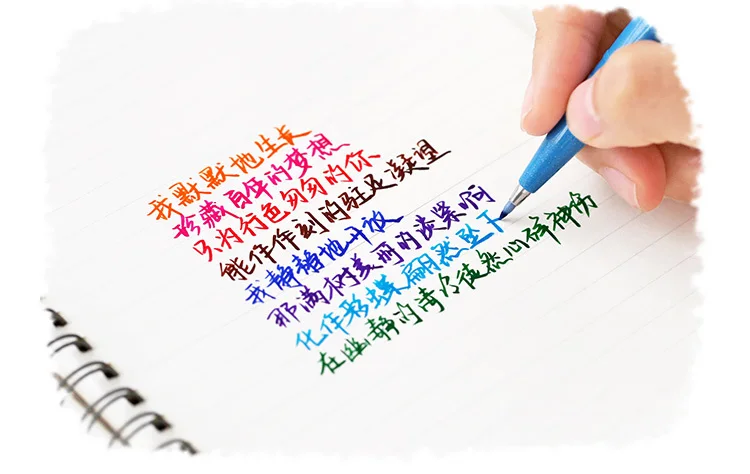 我默默地生长
珍藏自年的梦想
只为行色匆匆的你
能作作刻的驻足凝望
我静静地开放
那满树美丽的淡紫啊
化作彩蝶翩然坠下
在幽静的青冷徒然心碎神伤